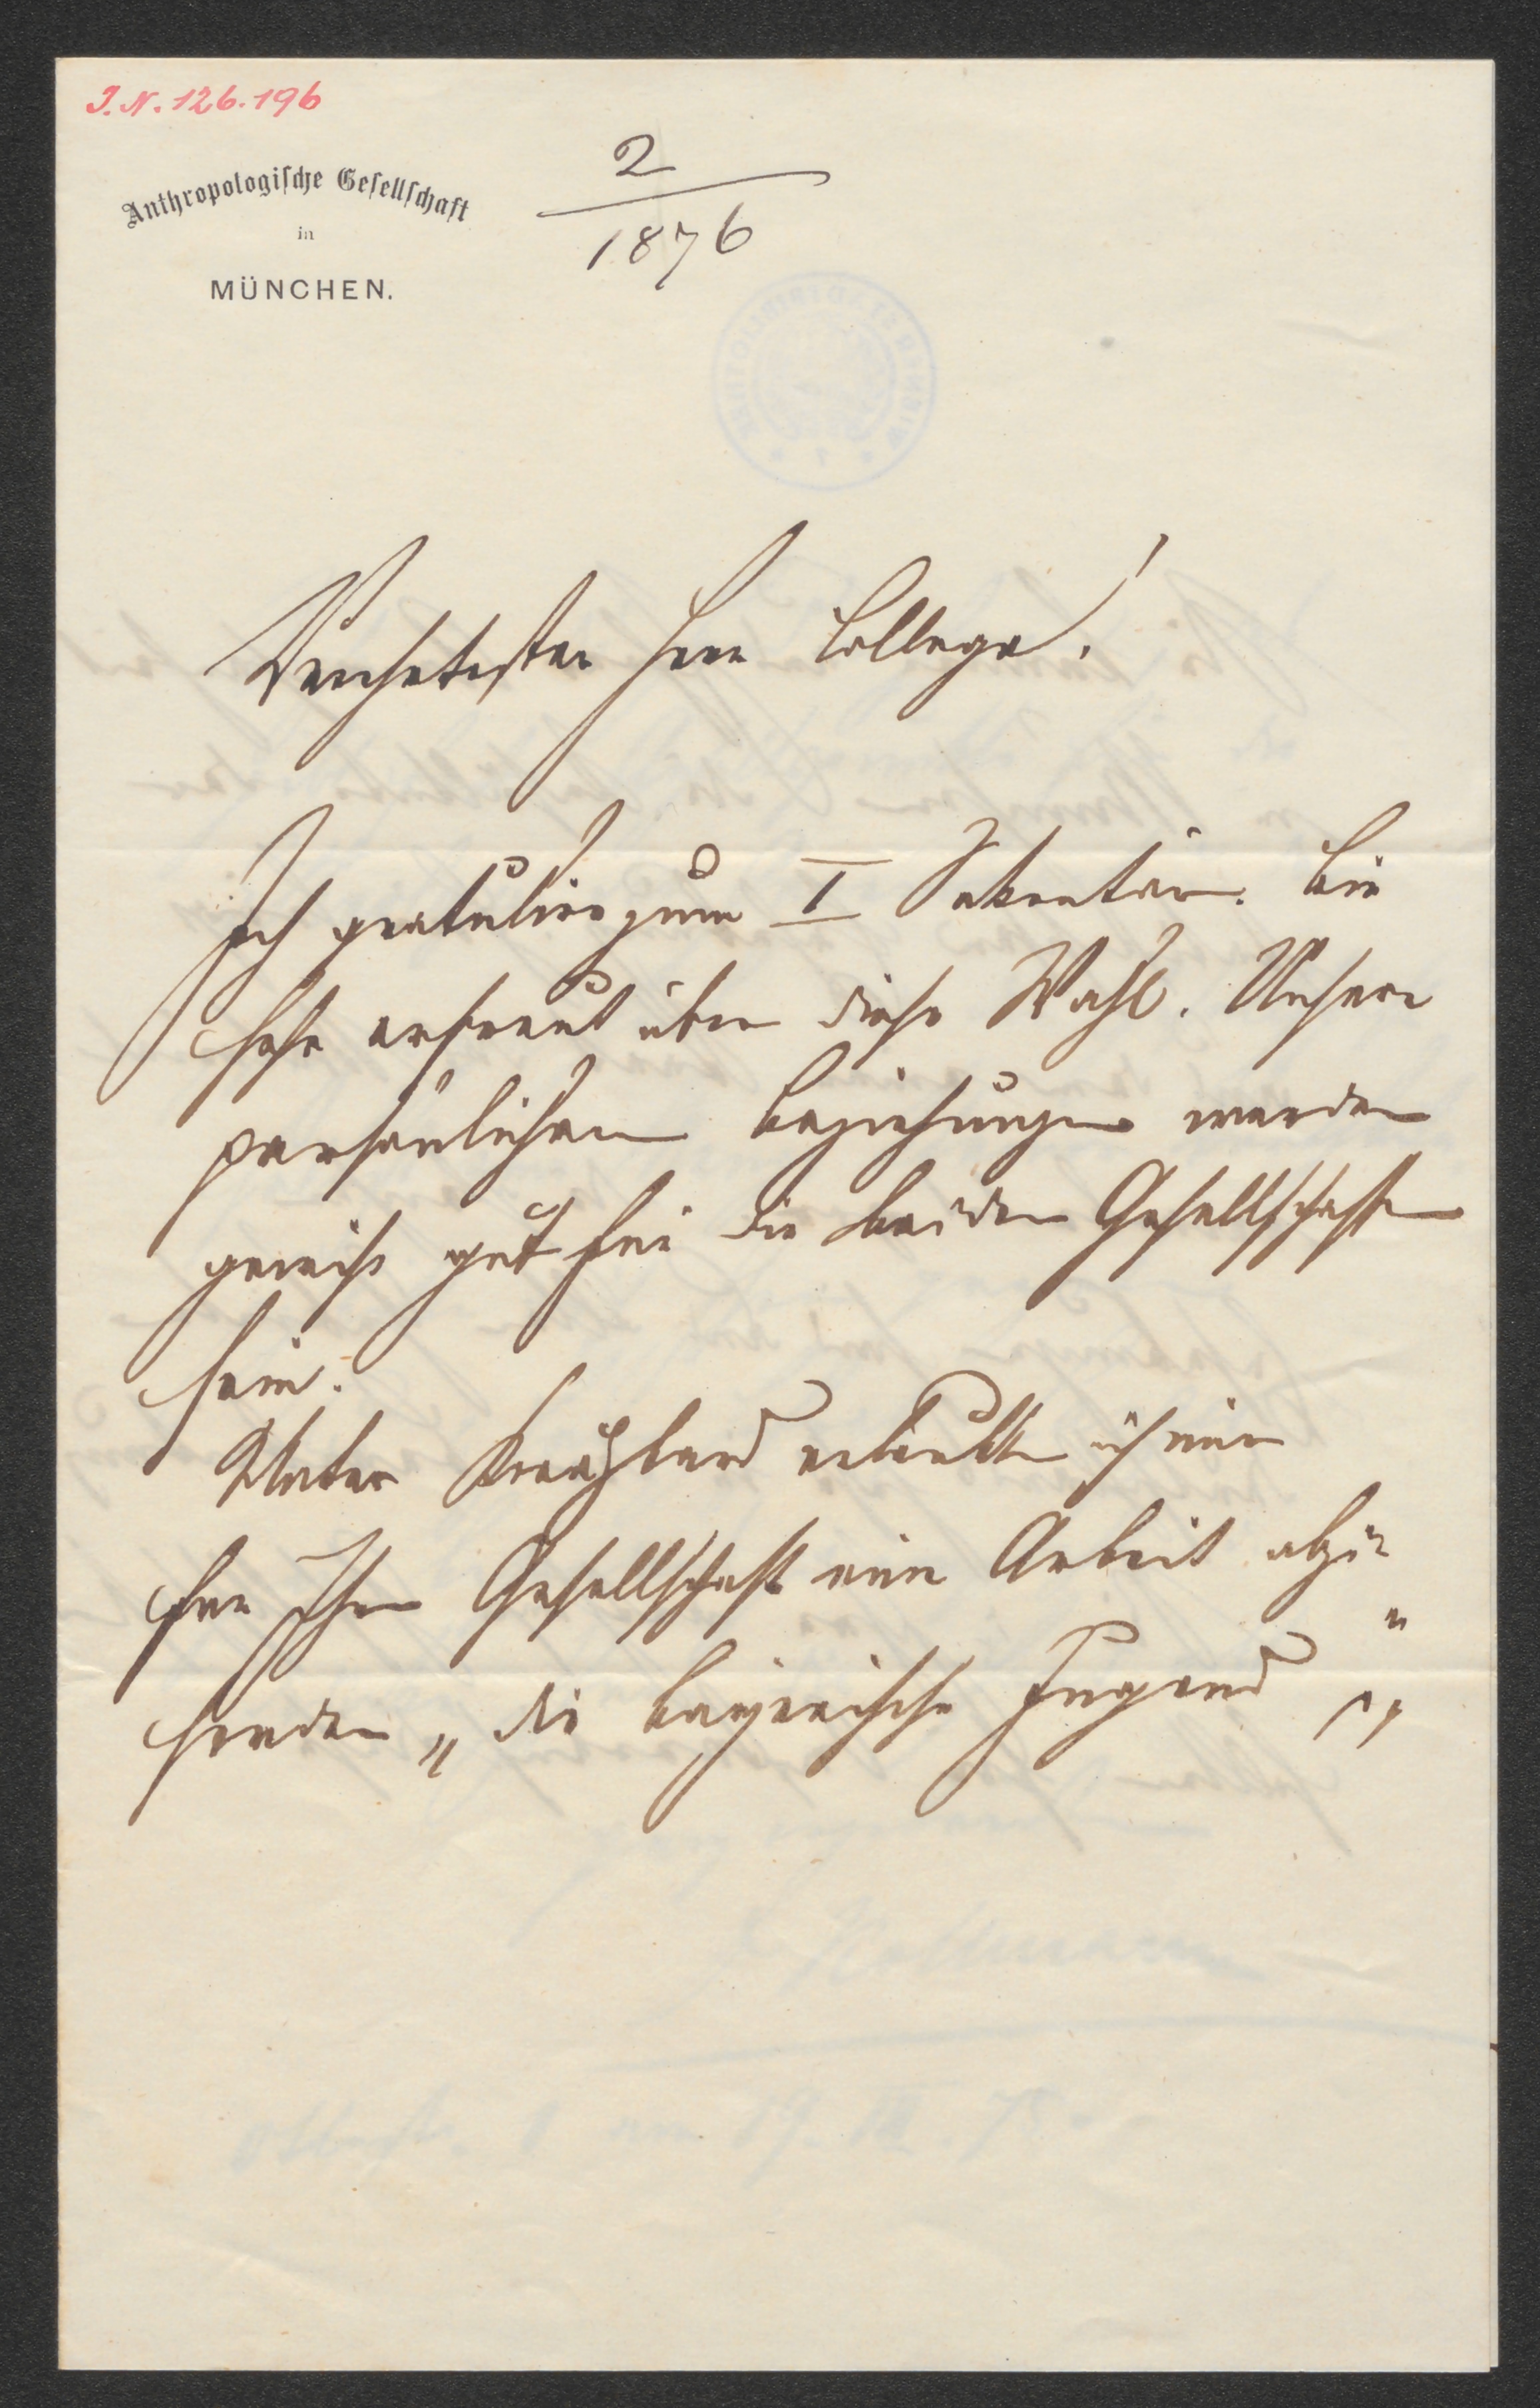 J. N. 126.196
Anthropologische Gesellschaft
in
MÜNCHEN.
2
1876
Verehrtester Herr College!
Ich gratulire zum I Sekretär. Bin
sehr erfreut über diese Wahl. Unsere
persönlichen Beziehungen werden
gewiss gut für die beiden Gesellschaften
sein.
Unter Kreuzband erlaubte ich mir
Ihrer Gesellschaft eine Arbeit abzu-
senden „die bayerische Jugend"